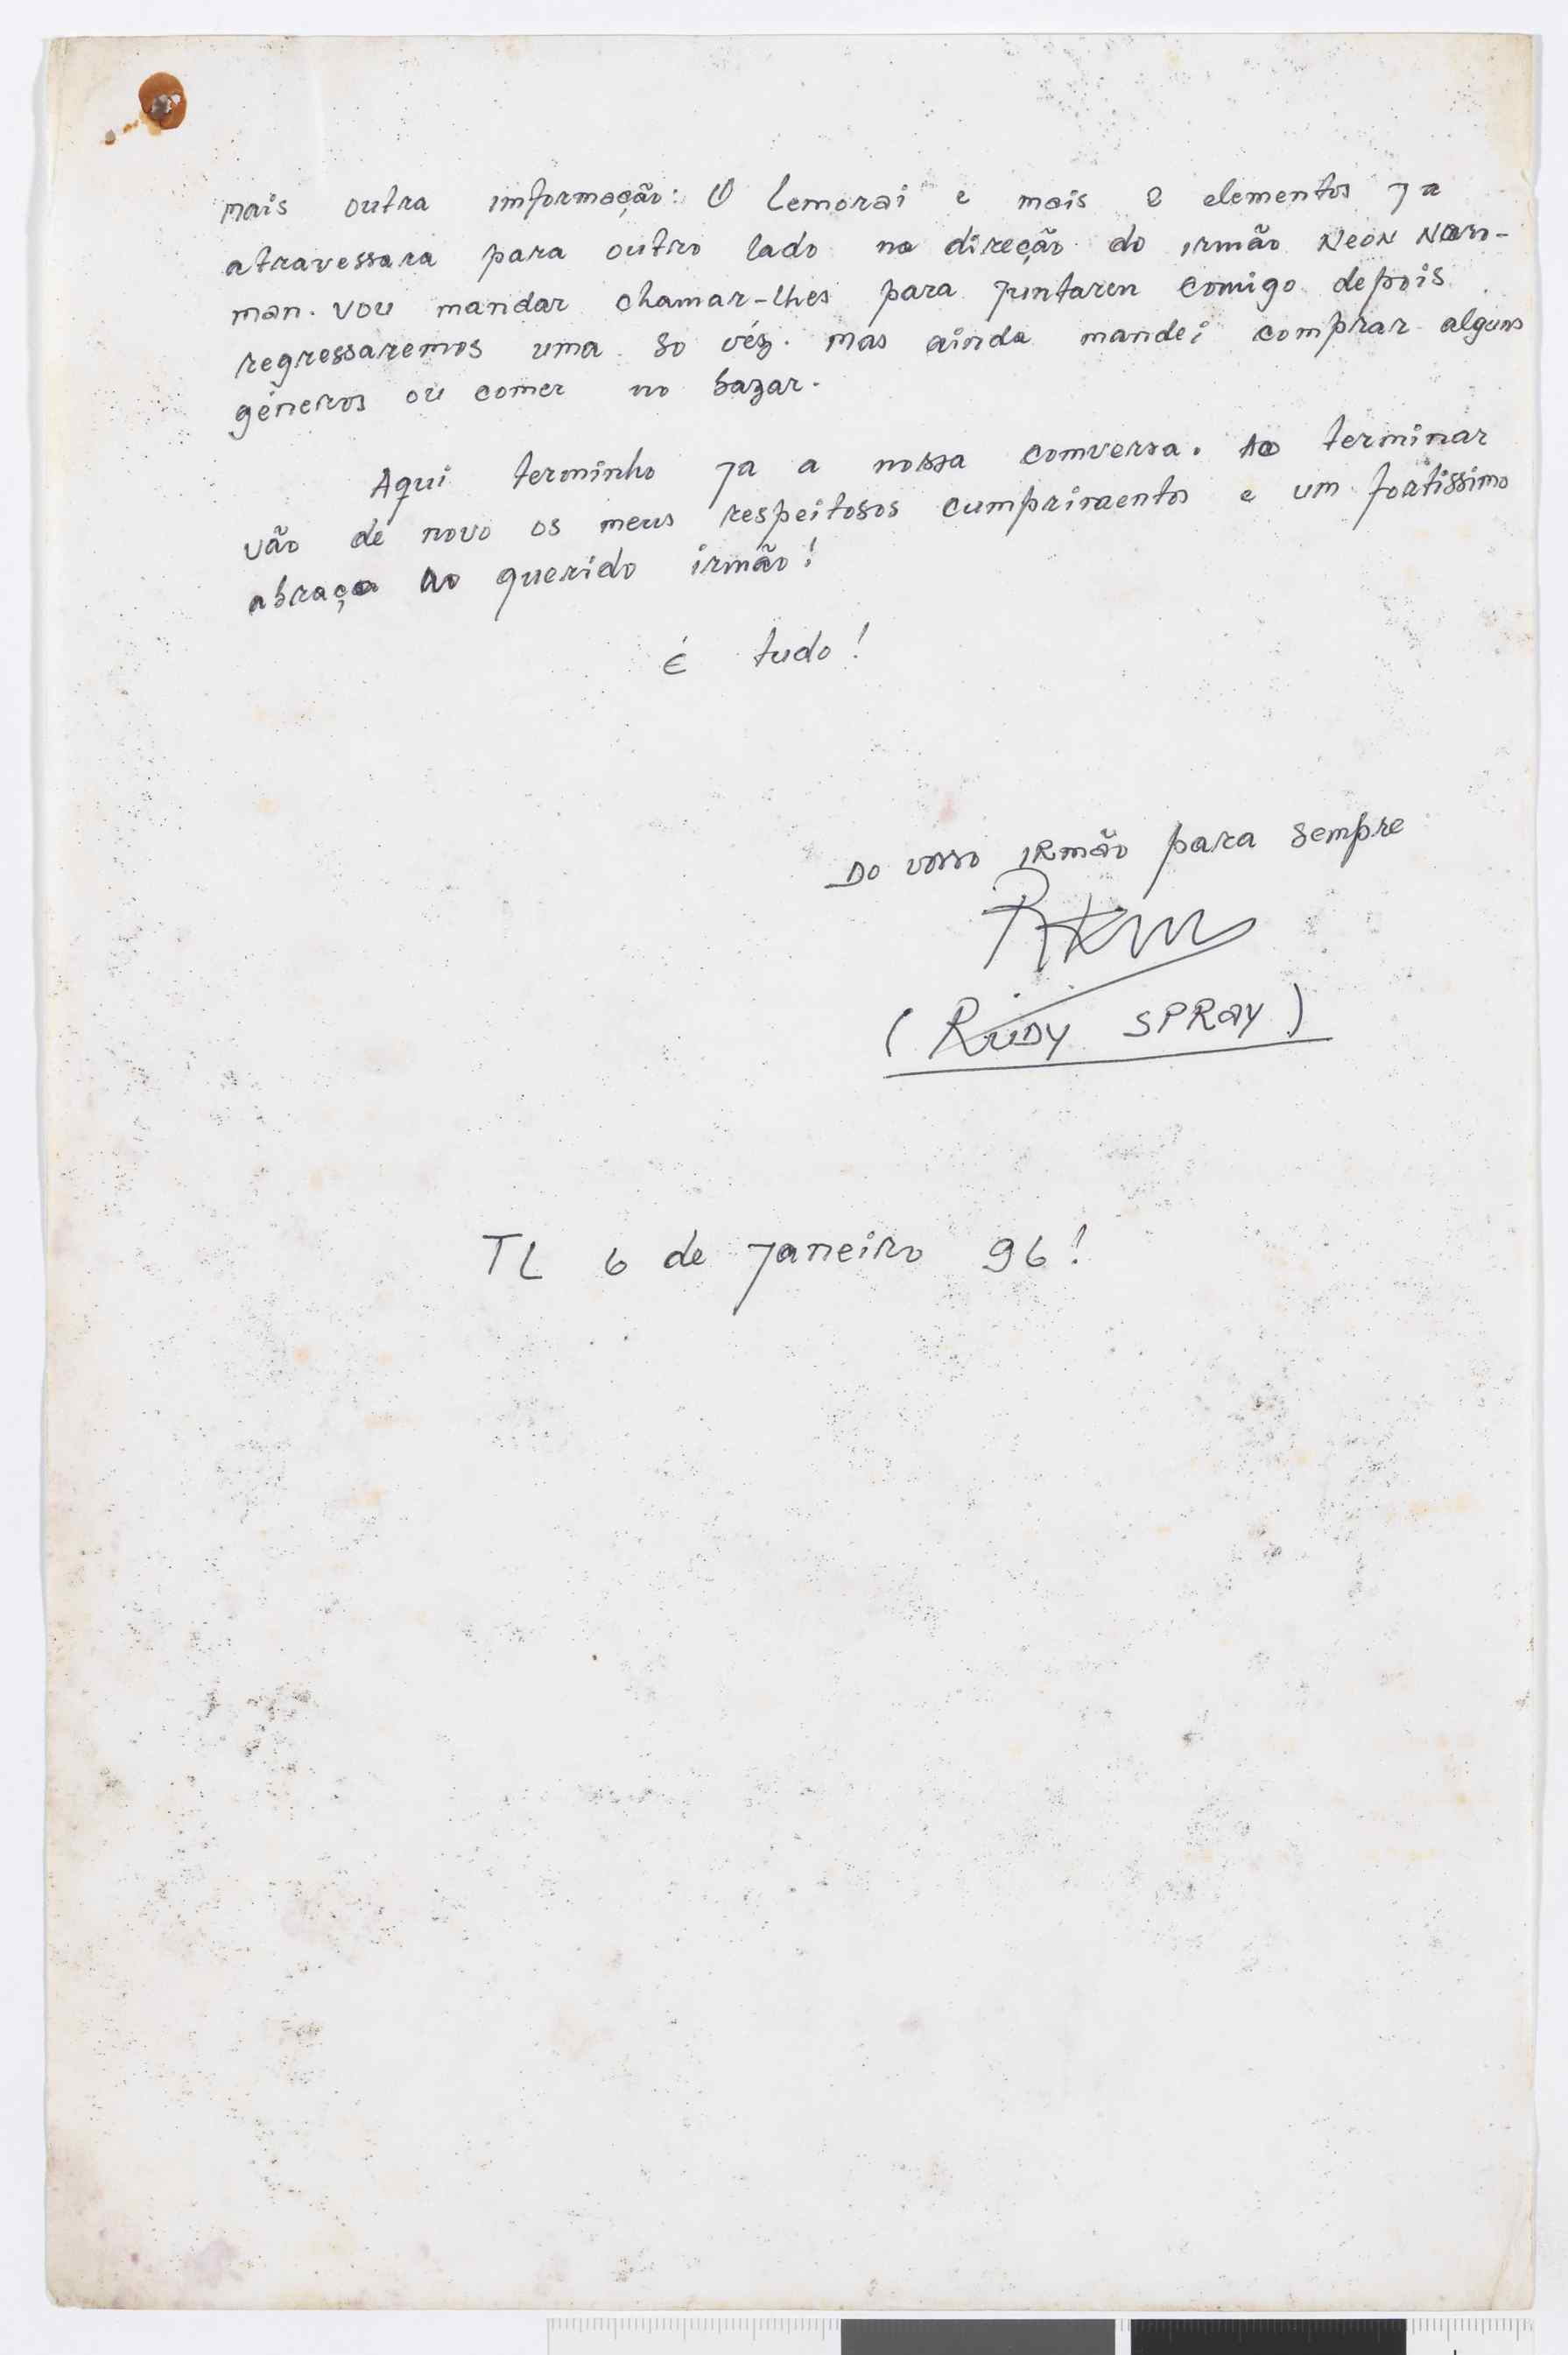 mais outra imformação: O Lemorai e mais 2 elementos ja
atravessara para outro lado na direção do irmão NeoN Nam-
man. Vou mandar chamar-lhes para juntaren comigo depois
regressaremos uma so véz. Mas ainda mandei comprar alguns
géneros ou comer no bazar.
Aqui terminho ja a nossa comversa. Ao terminar
vão de novo os meus respeitosos cumprimentos e um fortissimo
abraço Ao querido irmão!
É tudo!
Do vosso IRmão para sempre
(RuDy SPRay)
TL 6 de janeiro 96!